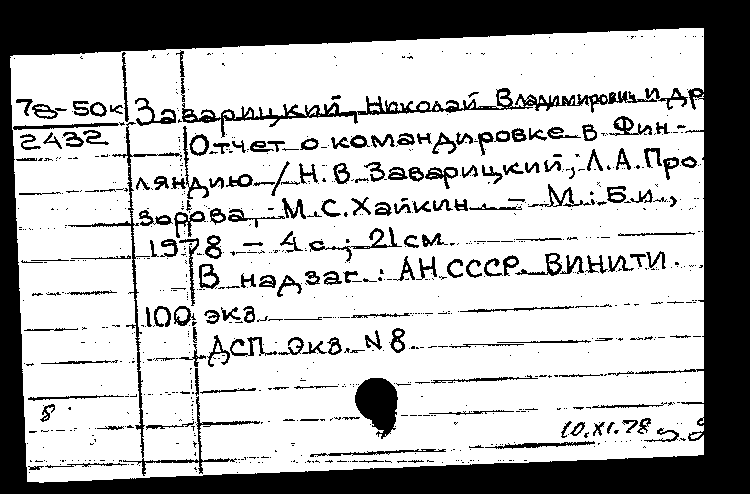 78-50к Заварицкий, Николай Владимирович и др
2432 Отчет о командировке в Фин-
ляндию / Н.В. Заварицкий, Л.А. Про
зорова, М.С. Хайкин. – М.: Б.и.,
1978. – 4 с.; 21 см.
В надзаг.: АН СССР. ВИНИТИ.
100 экз.
ДСП. Экз. N 8
8
10.XI.78